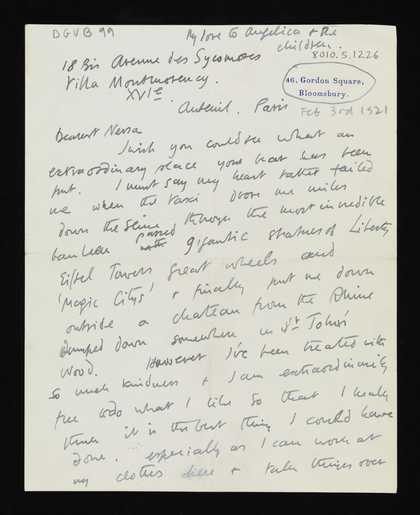 DGVB 99
My love to Angelica & the
children.
8010.5.1226
18 Bis Avenue des Sycomores
Villa Montmorency.
XVIe.
Auteuil. Paris
46, Gordon Square,
Bloomsbury.
Feb 3rd 1921
Dearest Nessa
I wish you could see what an
extraordinary place your has been
put. I must say my heart rather failed
me when the taxi drove me miles
down the Seine through the most incredible
banlieue passed gigantic statues of Liberty
Eiffel Towers great wheels and
'Magic Citys' & finally put me down
outside a chateau from the Rhine
dumped down somewhere in St John's
Wood. However I've been treated with
so much kindness & I am extraordinarily
free to do what I like so that I really
think it is the best thing I could have
done. especially as I can work at
my clothes here & take things over